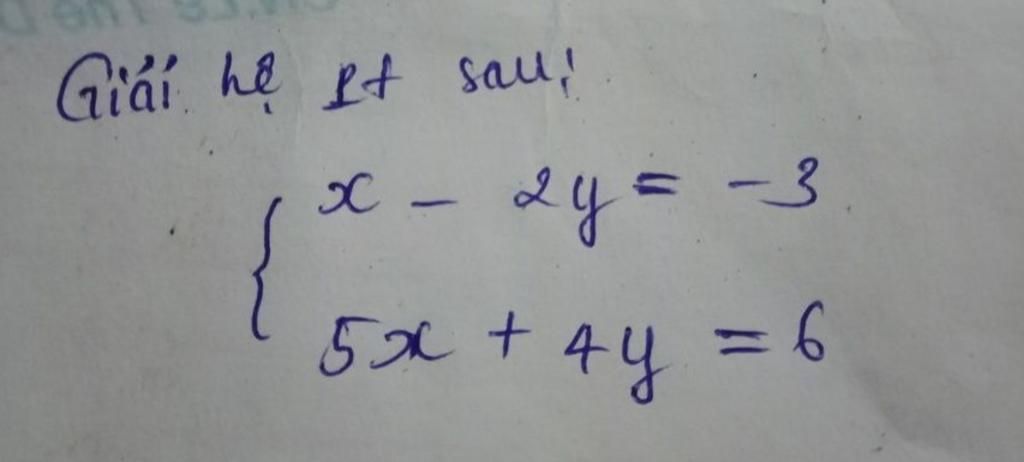 Giải hệ pt sau:
x - 2y = -3
5x + 4y = 6